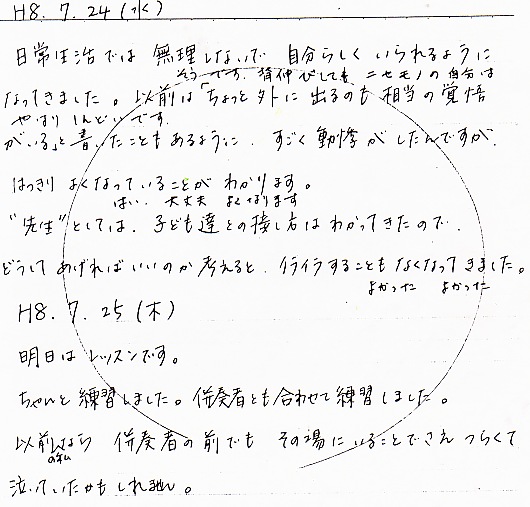 H8. 7. 24 (水)
日常生活では 無理しないで 自分らしく いられるように
そうです。背伸びしても ニセモノの自分は
なってきました。以前は「ちょっと外に 出るのも 相当の覚悟
やはり しんどいです
がいる」と書いたこともあるように、すごく動悸がしたんですが、
はっきり よくなっていることが わかります。
はい、大丈夫 よくなります
"先生"としては、子ども達との接し方はわかってきたので、
どうして あげればいいのか 考えると、イライラすることも なくなってきました。
よかった よかった
H8. 7. 25 (木)
明日は レッスンです。
ちゃんと練習しました。伴奏者とも合わせて練習しました。
以前なら 伴奏者の前でも その場に いることでさえ つらくて
の私
泣いていたかもしれません。